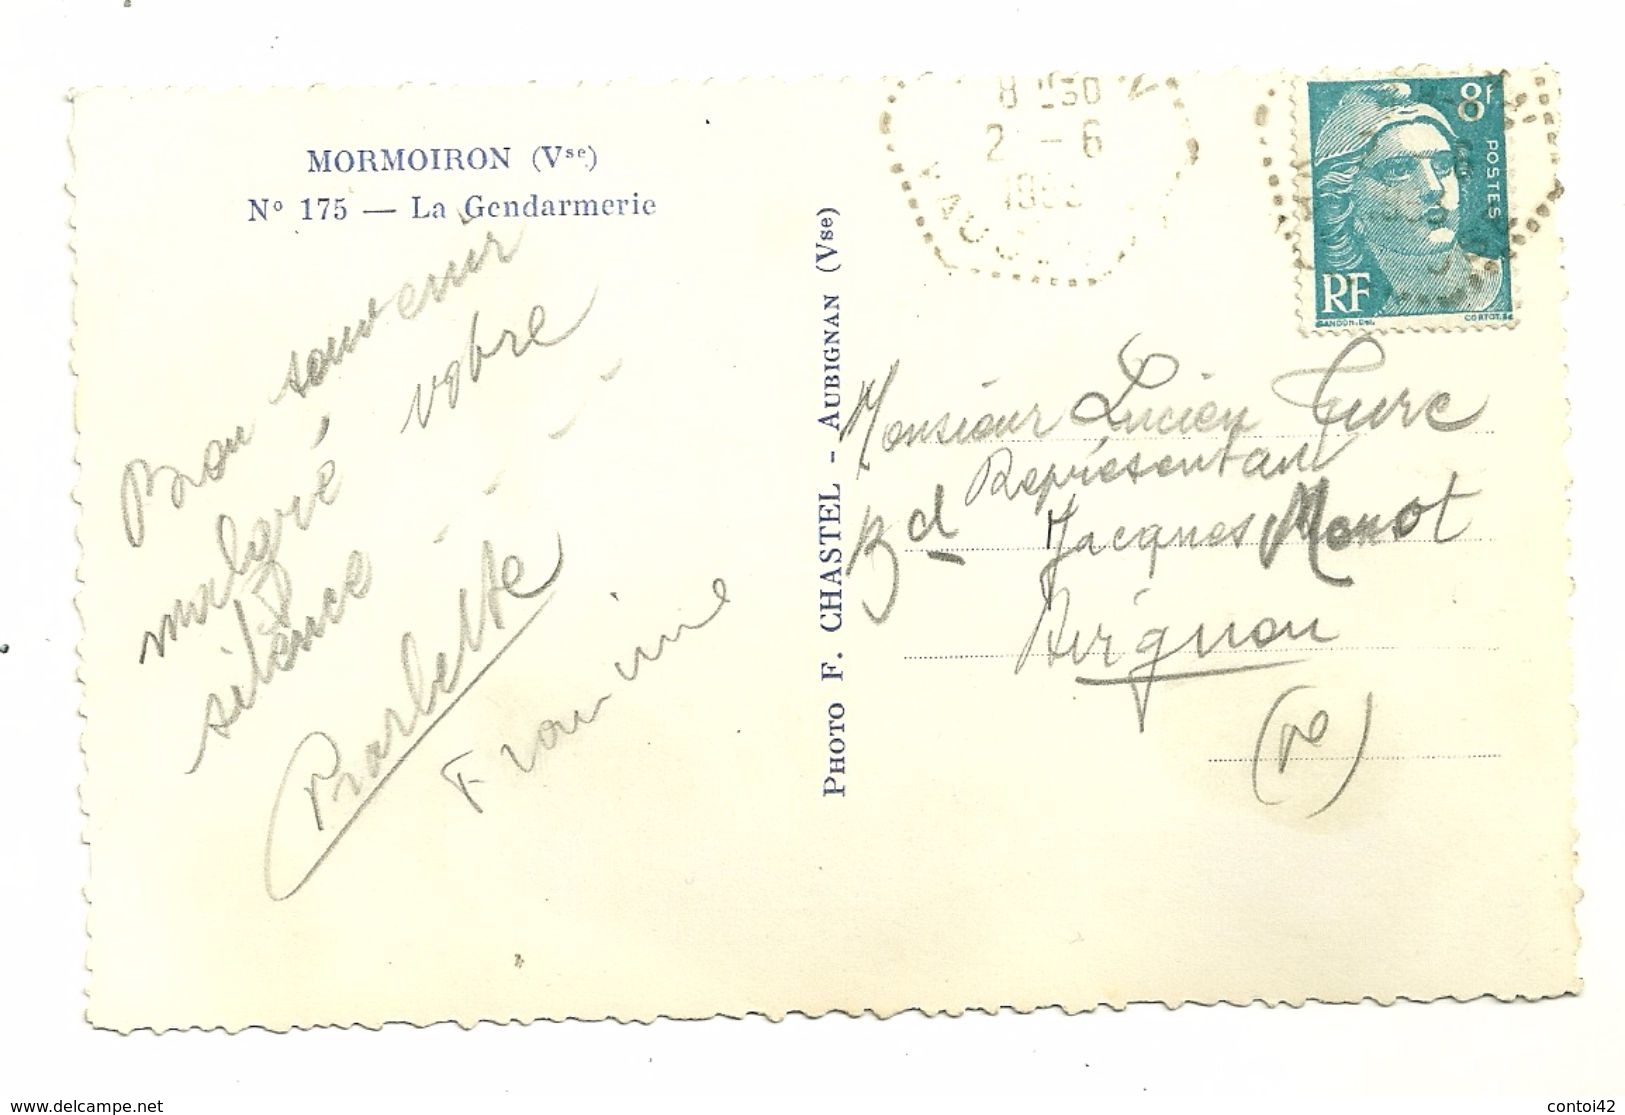 MORMOIRON (Vse)
N° 175 — La Gendarmerie
Bon souvenir
malgré votre
silence
Barbette
Francine
PHOTO F. CHASTEL - AUBIGNAN (Vse)
8 H30
2 - 6
8f
POSTES
RF
GANDON.Del.
CORTOT.Sc
Monsieur Lucien Turc
Représentant
Bd Jacques Monot
Avignon
delcampe.net
contoi42